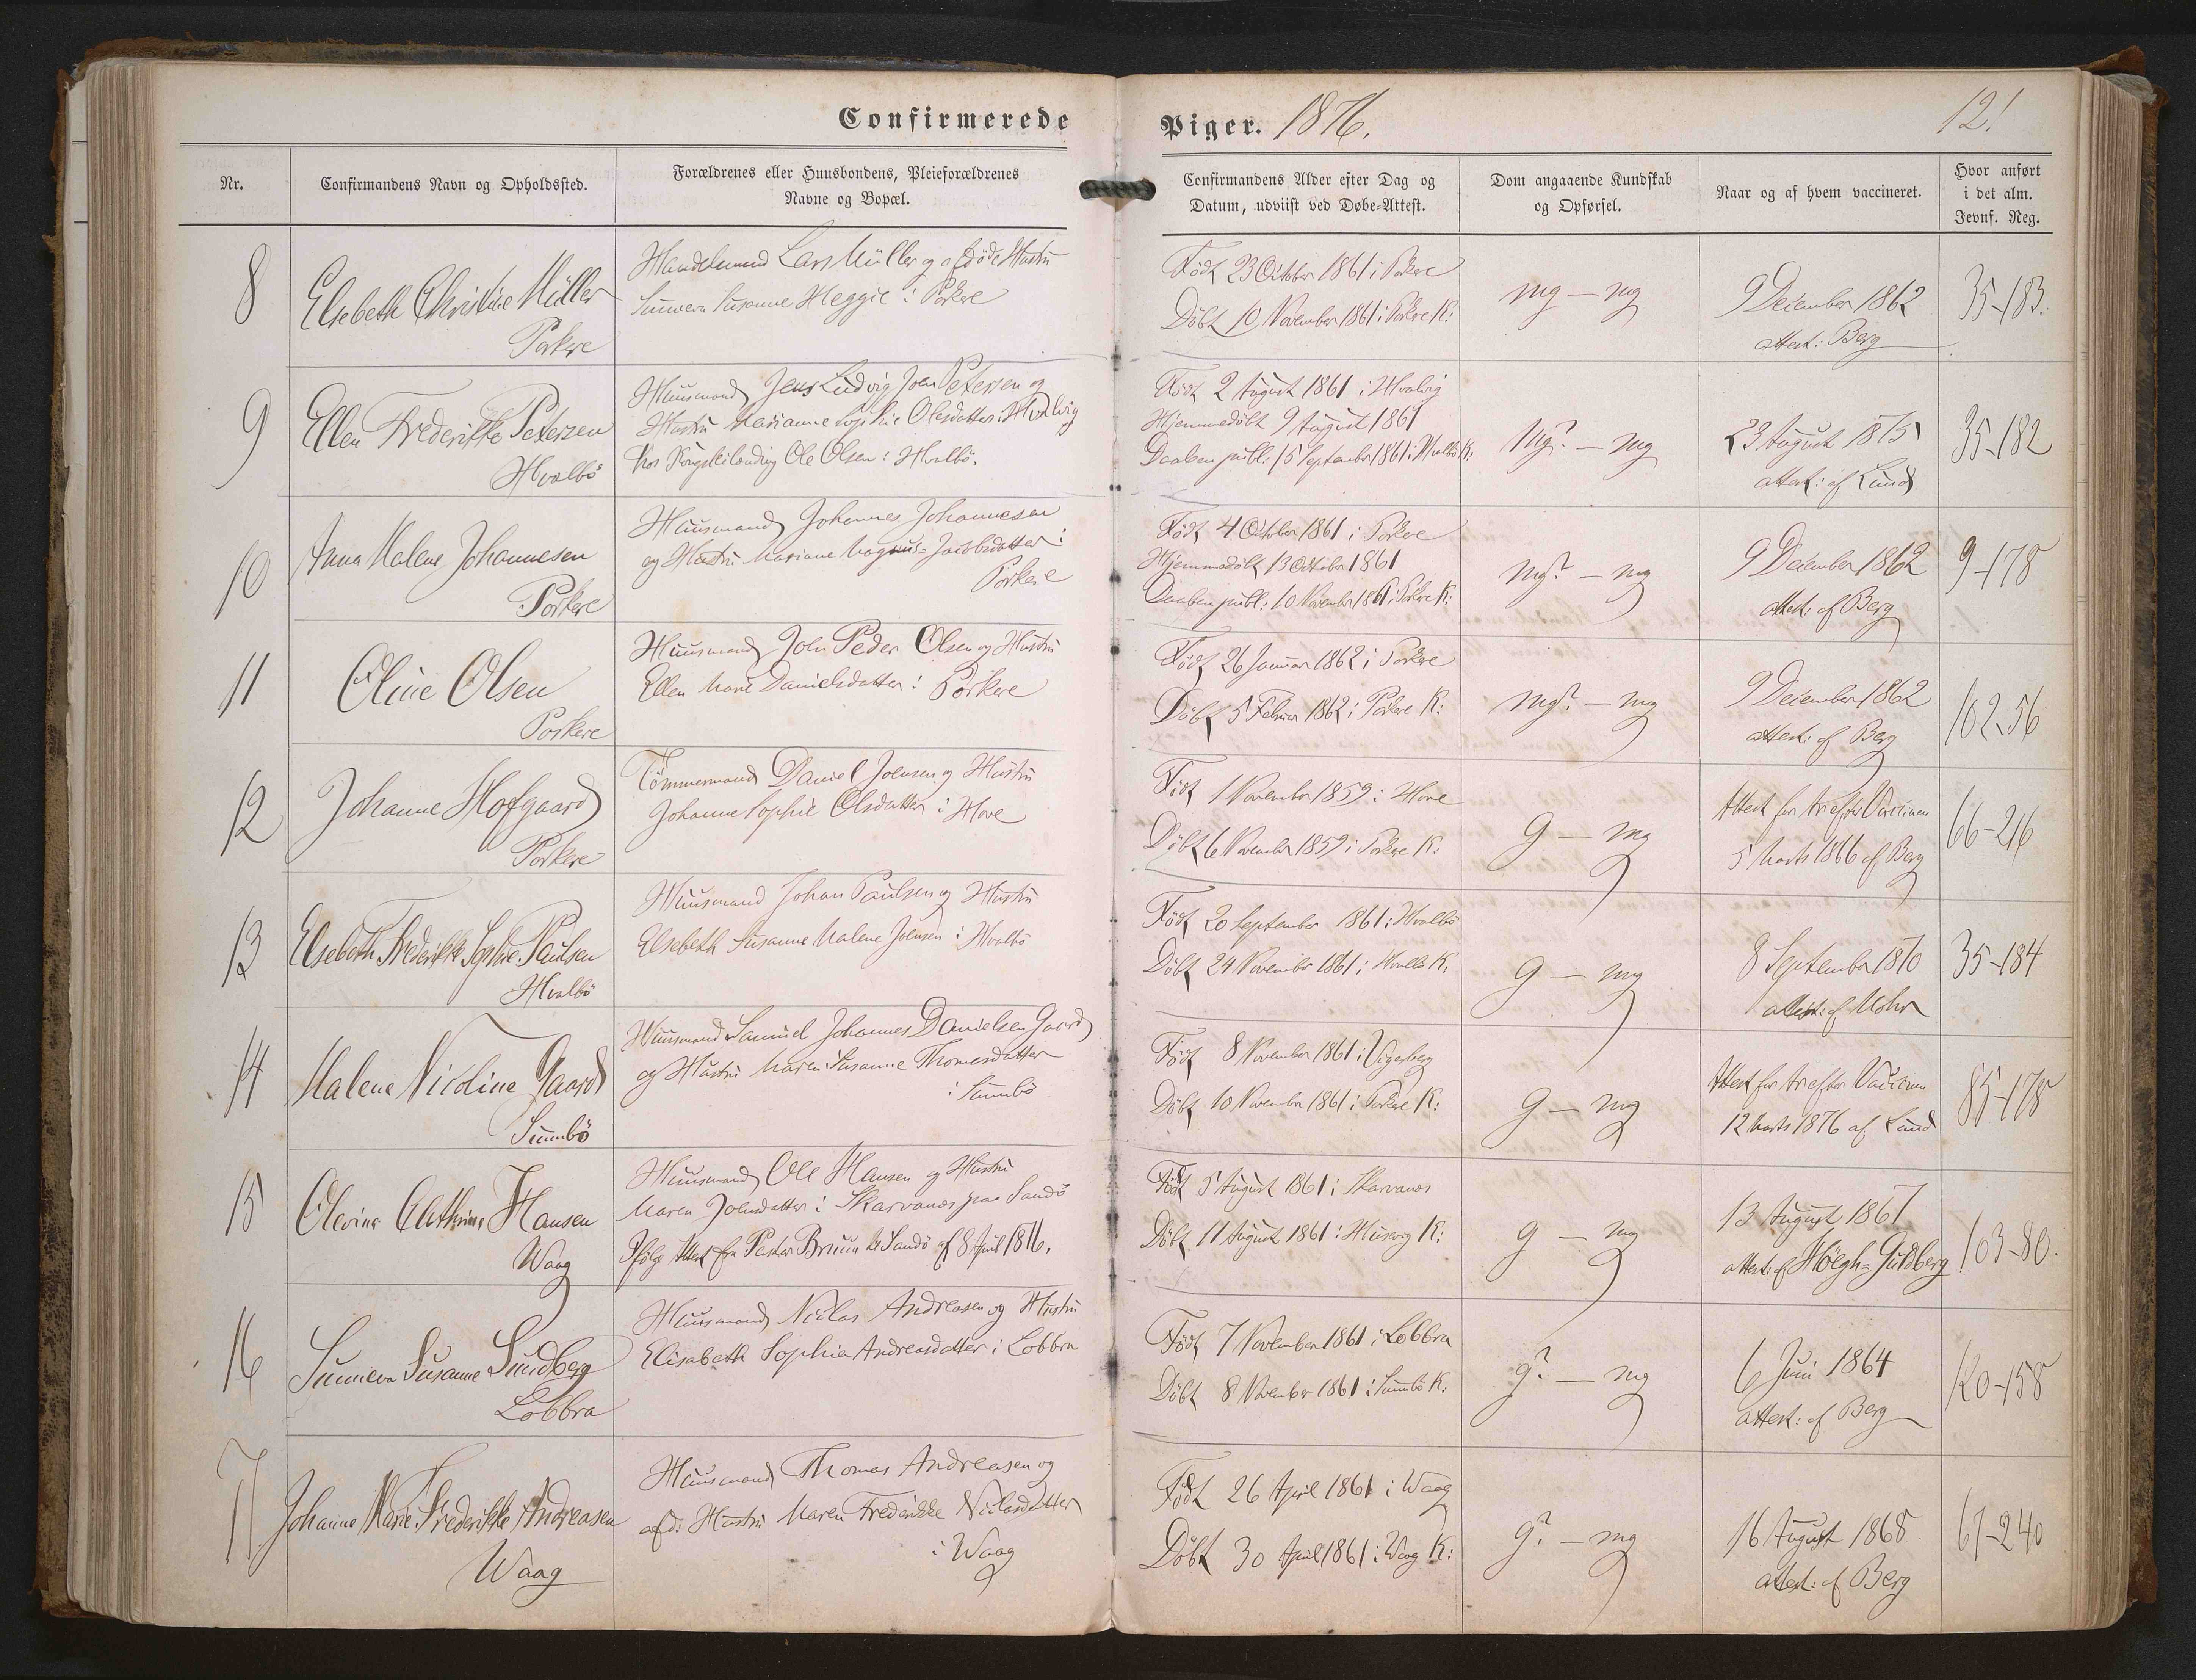 Confirmerede Piger. 1876.
12!
Nr.
Confirmandens Navn og Opholdssted.
Forældrenes eller Huusbondens, Pleieforældrenes
Navne og Bopæl.
Confirmandens Alder efter Dag og
Datum, udviist ved Døbe-Attest.
Dom angaaende Kundskab
og Opførsel.
Naar og af hvem vaccineret.
Hvor anført
i det alm.
Jevnf. Reg.
8
Elsebeth Christine Müller
Porkere
Handelsmand Lars Müller og afdøde Hustru
Sunneva Susanne Heggie i Porkere
Født 23 October 1861 i Porkere
Döbt 10 November 1861 i Porkere K:
mg — mg
9 December 1862
attest: Berg
35-183.
9
Ellen Frederikke Petersen
Hvalbö
Huusmand Jens Ludvig Joen Petersen og
Hustru Marianne Sophie Olesdatter i Hvalvig
hos Ole Olsen i Hvalbö.
Født 2 August 1861 i Hvalvig
Hjemmedöbt 9 August 1861
Daaben publ: 15 September 1861 i Hvalbö K.
mg? — mg
23 August 1875
attest: af Lund
35-182
10
Anna Malene Johannesen
Porkere
Huusmand Johannes Johannesen
og Hustru Mariane Magnus= Jacobsdatter i
Porkere
Født 4 October 1861 i Porkere
Hjemmedöbt 13 October 1861
Daaben publ: 10 November 1861 i Porkere K:
mg? — mg
9 December 1862
attest: af Berg
9-178
11
Oline Olsen
Porkere
Huusmand Joen Peder Olsen og Hustru
Ellen Marie Danielsdatter i Porkere
Født 26 Januar 1862 i Porkere
Döbt 5 Februar 1862 i Porkere K:
mg? — mg
9 December 1862
attest: af Berg
102-56
12
Johanne Hofgaard
Porkere
Tömmermand Daniel Joensen og Hustru
Johanne Sophie Olsdatter i Hove
Født 1 November 1859 i Hove
Döbt 6 November 1859 i Porkere K:
g — mg
Attest for trefter Vaccinen
5 Marts 1866 af Berg
66-216
13
Elsebeth Frederikke Sophie Paulsen
Hvalbö
Huusmand Johan Paulsen og Hustru
Elsebeth Susanne Malene Joensen i Hvalbö
Født 20 September 1861 i Hvalbö
Döbt 24 November 1861 i Hvalbö K.
g — mg
8 September 1870
attest: af Mohr
35-184
14
Malene Nicoline Gaard
Sumbö
Huusmand Samuel Johannes Danielsen Gaard
og Hustru Maren Susanne Thomesdatter
i Sumbö
Født 8 November 1861 i
Döbt 10 November 1861 i Porkere K:
g — mg
Attest for trefter Vaccinen
12 Marts 1876 af Lund
85-178
15
Olevine Cathrine Hansen
Waag
Huusmand Ole Hansen og Hustru
Maren Joensdatter i Skarvanes paa Sandö
Ifölge Attest fra Pastor Bruun til Sandö af 8 April 1876.
Født 5 August 1861 i Skarvanes
Döbt 11 August 1861 i Husevig K:
g — mg
13 August 1867
attest: af Höegh=Guldberg
103-80.
16
Sunneva Susanne Sundberg
Lobbra
Huusmand Niclas Andreasen og Hustru
Elisabeth Sophia Andreasdatter i Lobbra
Født 7 November 1861 i Lobbra
Döbt 8 November 1861 i Sumbö K.
g? — mg
6 Juni 1864
attest: af Berg
120-158
17
Johanne Marie Frederikke Andreasen
Waag
Huusmand Thomas Andreasen og
afd: Hustru Maren Frederikke Niclasdatter
i Waag
Født 26 April 1861 i Waag
Döbt 30 April 1861 i Waag K:
g? — mg
16 August 1868
attest: af Berg
67-240